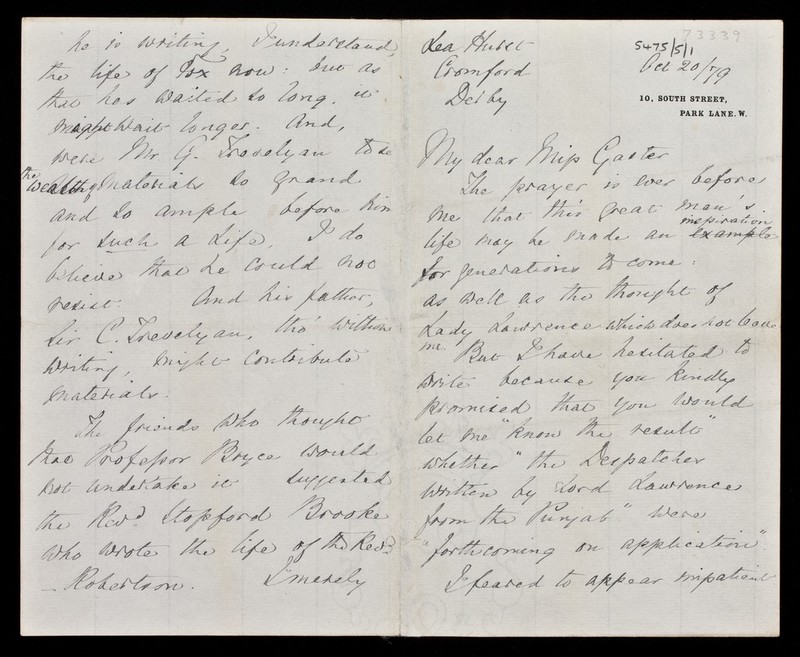 73339
5475/5/1
Lea Hurst
Cromford
Derby
Oct 20/79
10, SOUTH STREET,
PARK LANE. W.
My dear Miss Gaster
The prayer is ever before
me that this great man's
life may be made an example inspiration
for generations to come:
as well as the thought of
Lady Lawrence which does not leave
me. But I have hesitated to
write because you kindly
promised that you would
let me "know the result"
whether "the Despatches
written by Lord Lawrence
from the Punjab" were
"forthcoming on application"
I feared to appear impatient
he is writing, I understand,
the life of Fox now: but as
that has waited so long, it
might wait longer. And,
were Mr. G. Trevelyan to see
the wealth of materials so grand
and so ample before him
for such a Life, I do
believe that he could not
resist. And his father,
Sir C. Trevelyan, tho' without
writing, might contribute
materials.
The friends who thought
that Professor Bryce would
not undertake it suggested
the Revd. Stopford Brooke
who wrote the life of the Revd.
- Robertson. I merely